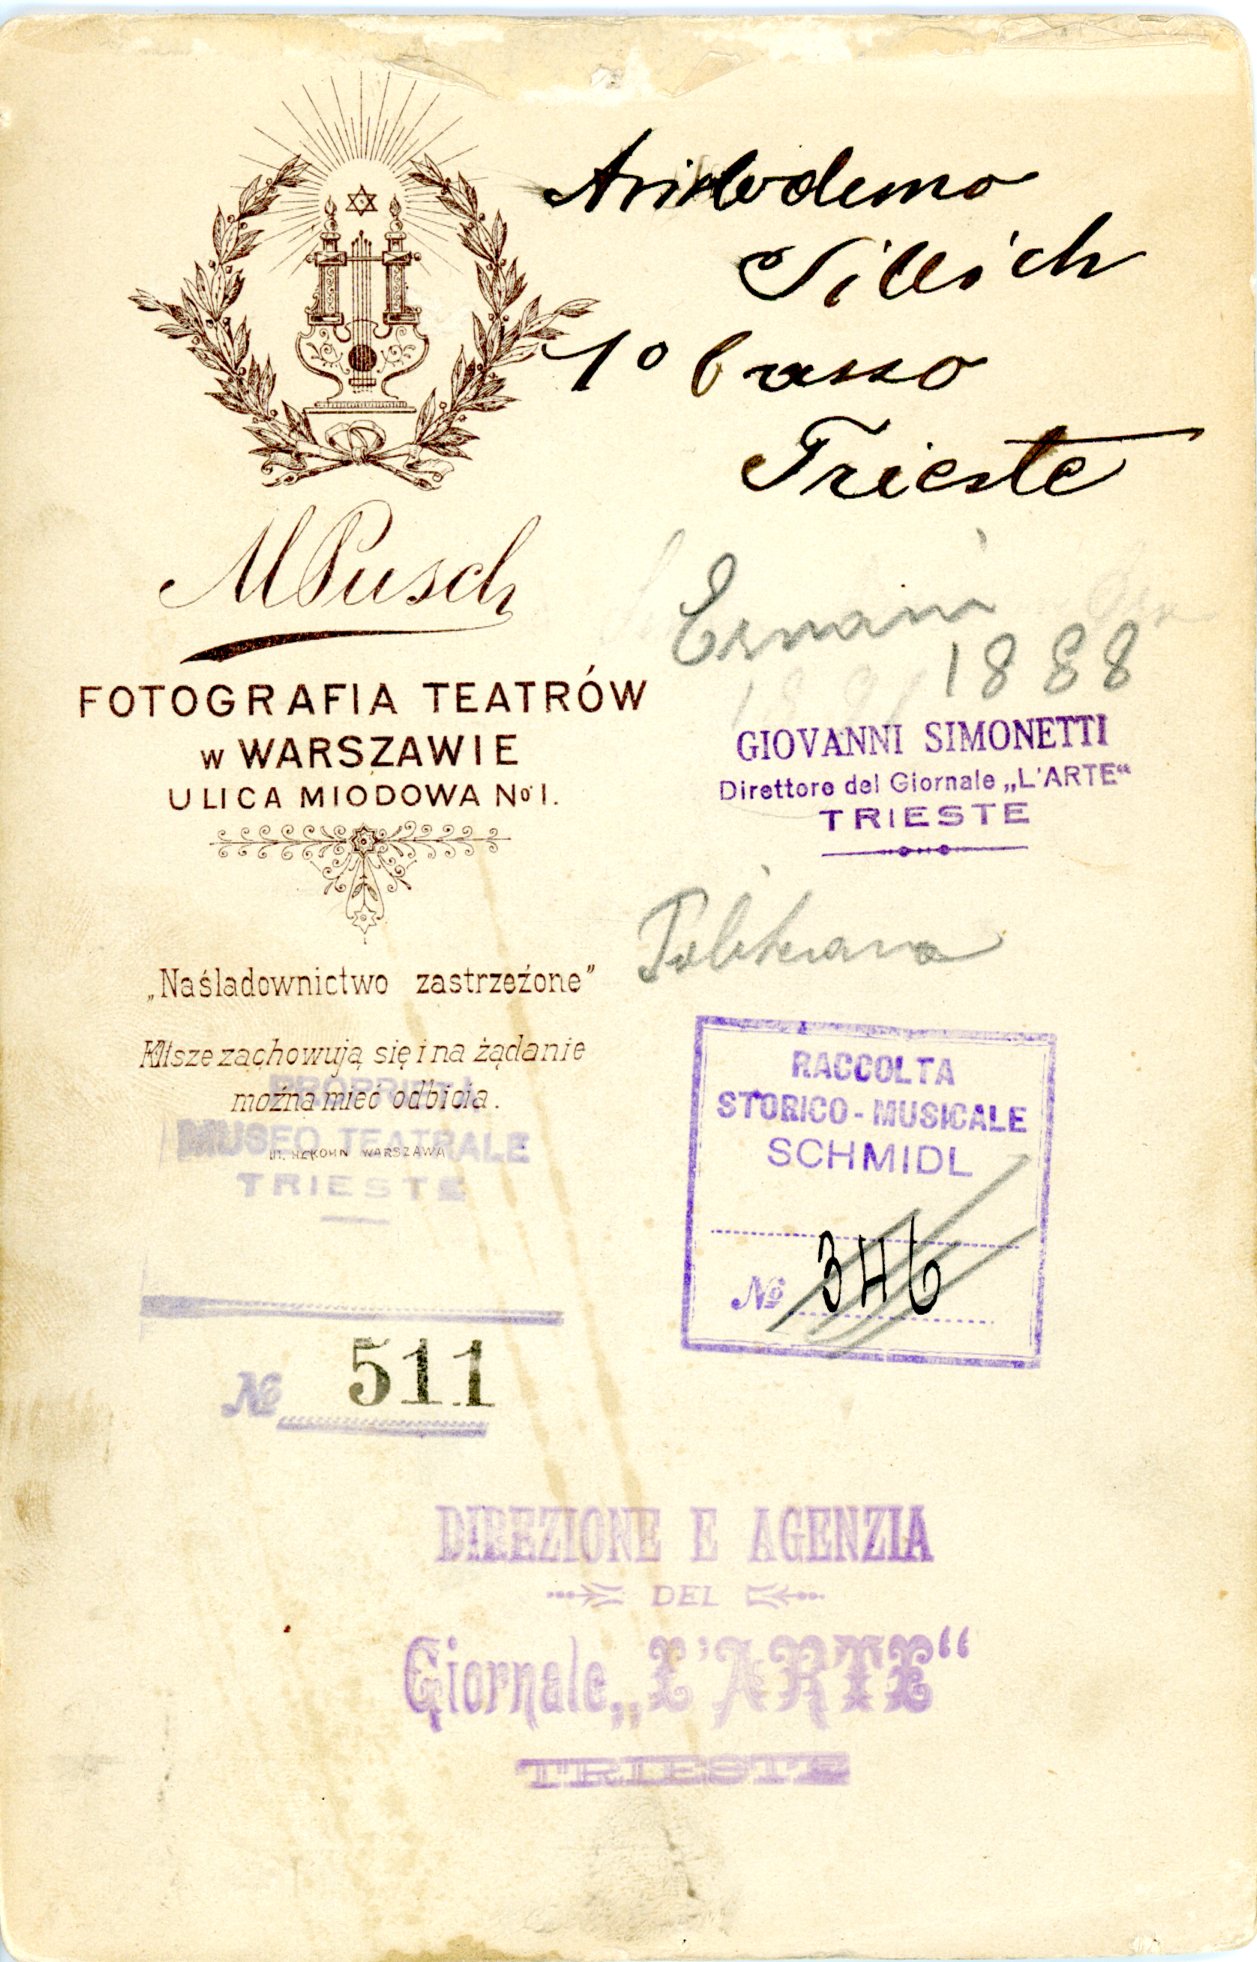 Aristodemo
Sillich
1º basso
Trieste
MPusch
FOTOGRAFIA TEATRÓW
w WARSZAWIE
ULICA MIODOWA No 1.
Ernani
1888
GIOVANNI SIMONETTI
Direttore del Giornale „L'ARTE“
TRIESTE
„Naśladownictwo zastrzeżone”
Klisze zachowują się i na żądanie
można mieć odbicia.
PROPRIETÀ
MUSEO TEATRALE
TRIESTE
WARSZAWA
RACCOLTA
STORICO-MUSICALE
SCHMIDL
No 346
No 511
DIREZIONE E AGENZIA
DEL
Giornale „L'ARTE“
TRIESTE